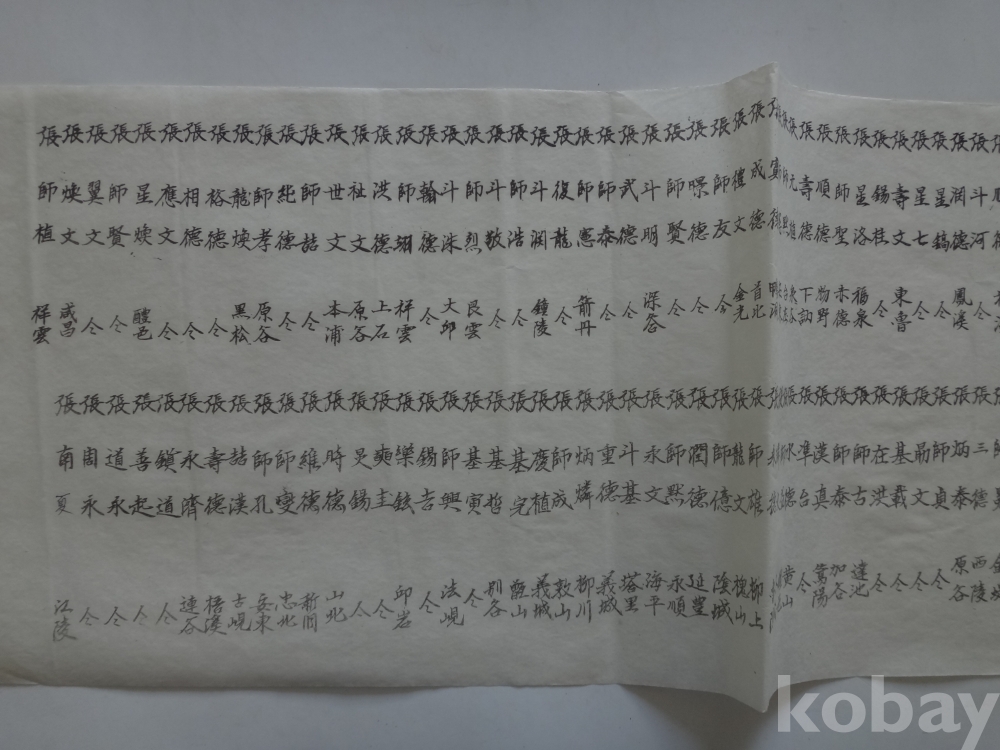 張斗河 仝
張潤德 鳳溪
張星鎬 仝
張星七 仝
張壽文 東魯
張錫桂 仝
張星洛 福泉
張師聖 赤德
張順德 物野
張壽德 下訥
張成德 首北
張權文 金光
張師友 仝
張暻德 仝
張師賢 仝
張斗明 深谷
張武德 仝
張師泰 仝
張師憲 箭丹
張復龍 仝
張斗潤 鐘陵
張師浩 仝
張斗敬 仝
張師烈 艮雲
張斗洙 大邱
張翰德 仝
張師翊 祥雲
張洪德 上石
張祉文 原谷
張世文 本浦
張師喆 仝
張純德 仝
張師孝 原谷
張龍煥 黑松
張裕德 仝
張相德 仝
張應文 仝
張星煥 醴邑
張師賢 仝
張翼文 仝
張煥文 咸昌
張師植 祥雲
張三德 西陵
張炳泰 原谷
張師貞 仝
張勗文 仝
張基載 仝
張在洪 仝
張師古 達池
張師泰 加谷
張漢真 鶯陽
張準台 仝
張師雄 柳上
張龍文 槐山
張師億 陰城
張潤德 延豊
張師默 永順
張永文 海平
張斗基 塔里
張重德 義城
張炳燐 柳川
張師成 敦山
張慶植 義城
張基完 甑山
張基哲 別谷
張基寅 仝
張師興 法峴
張錫吉 仝
張樂鉉 邱岩
張奭圭 仝
張旻錫 仝
張時德 山北
張維德 新間
張師燮 忠北
張師孔 安東
張喆漢 古峴
張壽德 梧溪
張永濟 達谷
張鎖道 仝
張善起 仝
張道永 仝
張周永 仝
張南夏 江陵
kobay